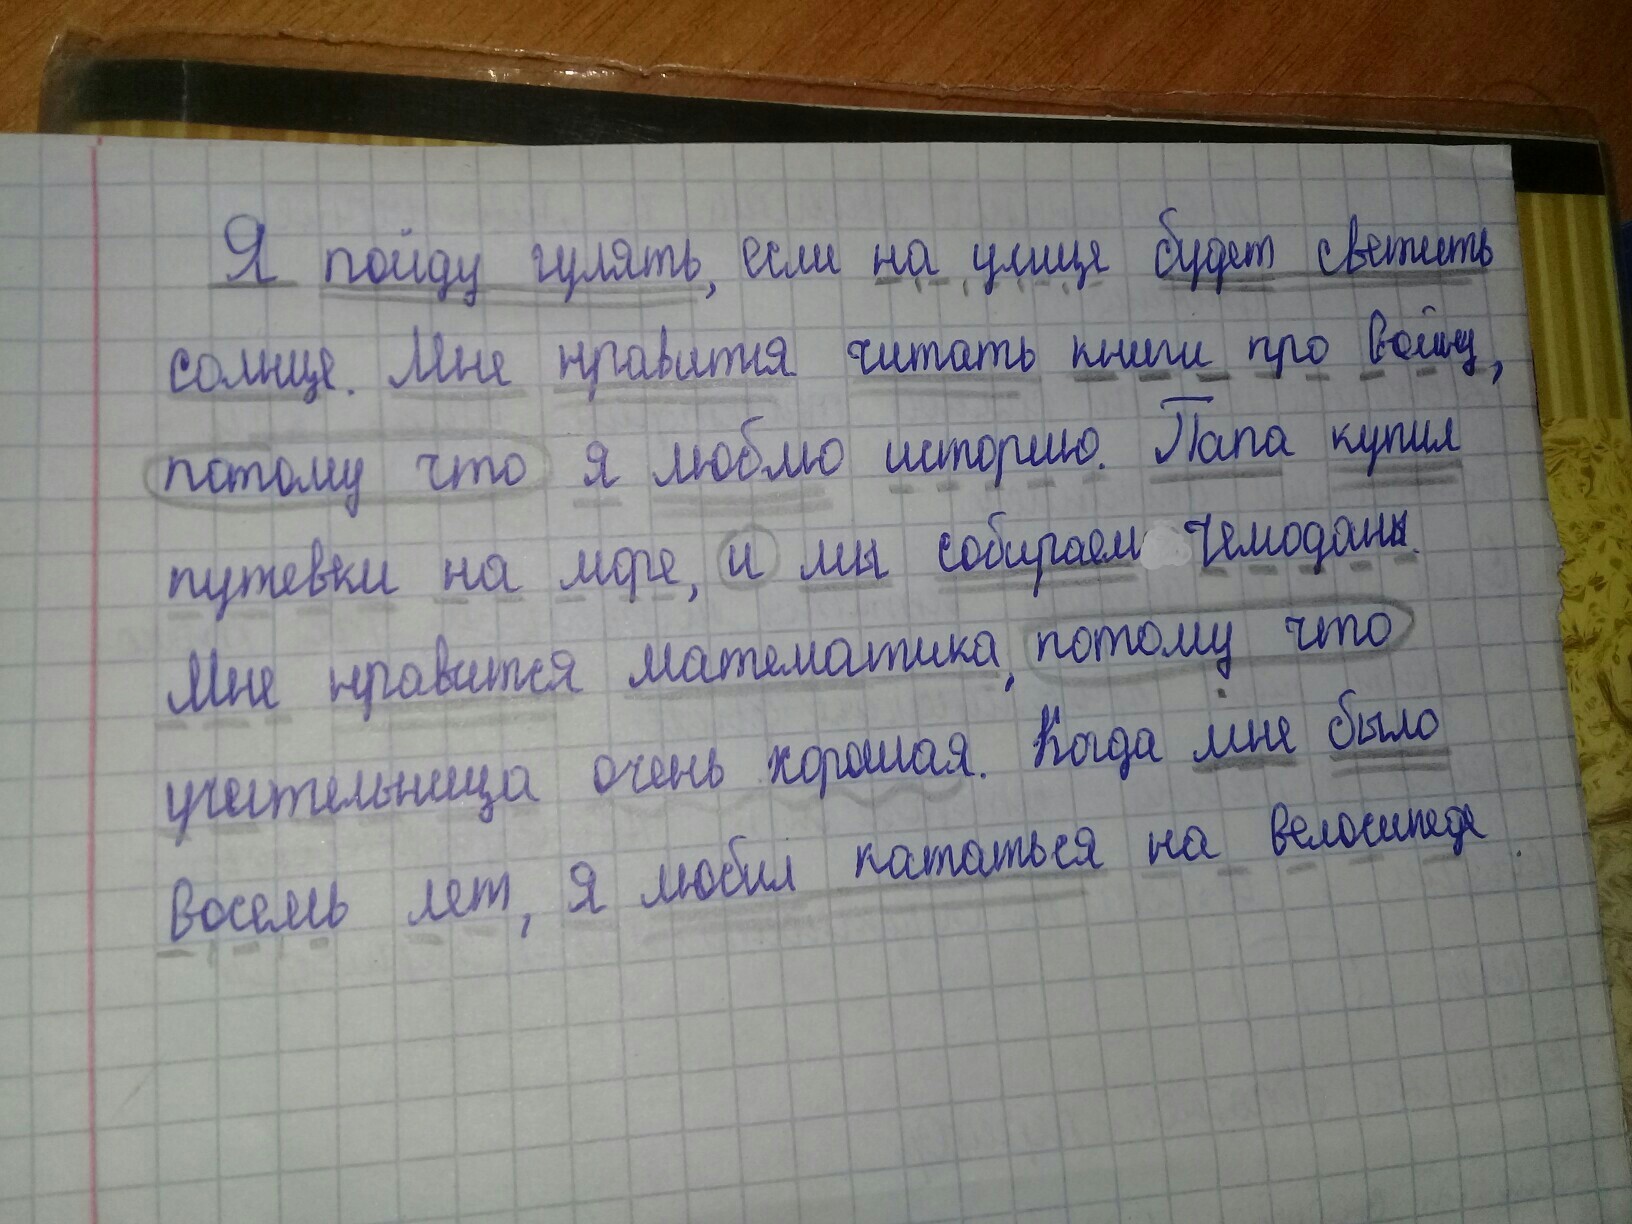 Я пойду гулять, если на улице будет светить
солнце. Мне нравится читать книги про войну,
потому что я люблю историю. Папа купил
путевки на море, и мы собираем чемоданы.
Мне нравится математика, потому что
учительница очень хорошая. Когда мне было
восемь лет, я любил кататься на велосипеде.